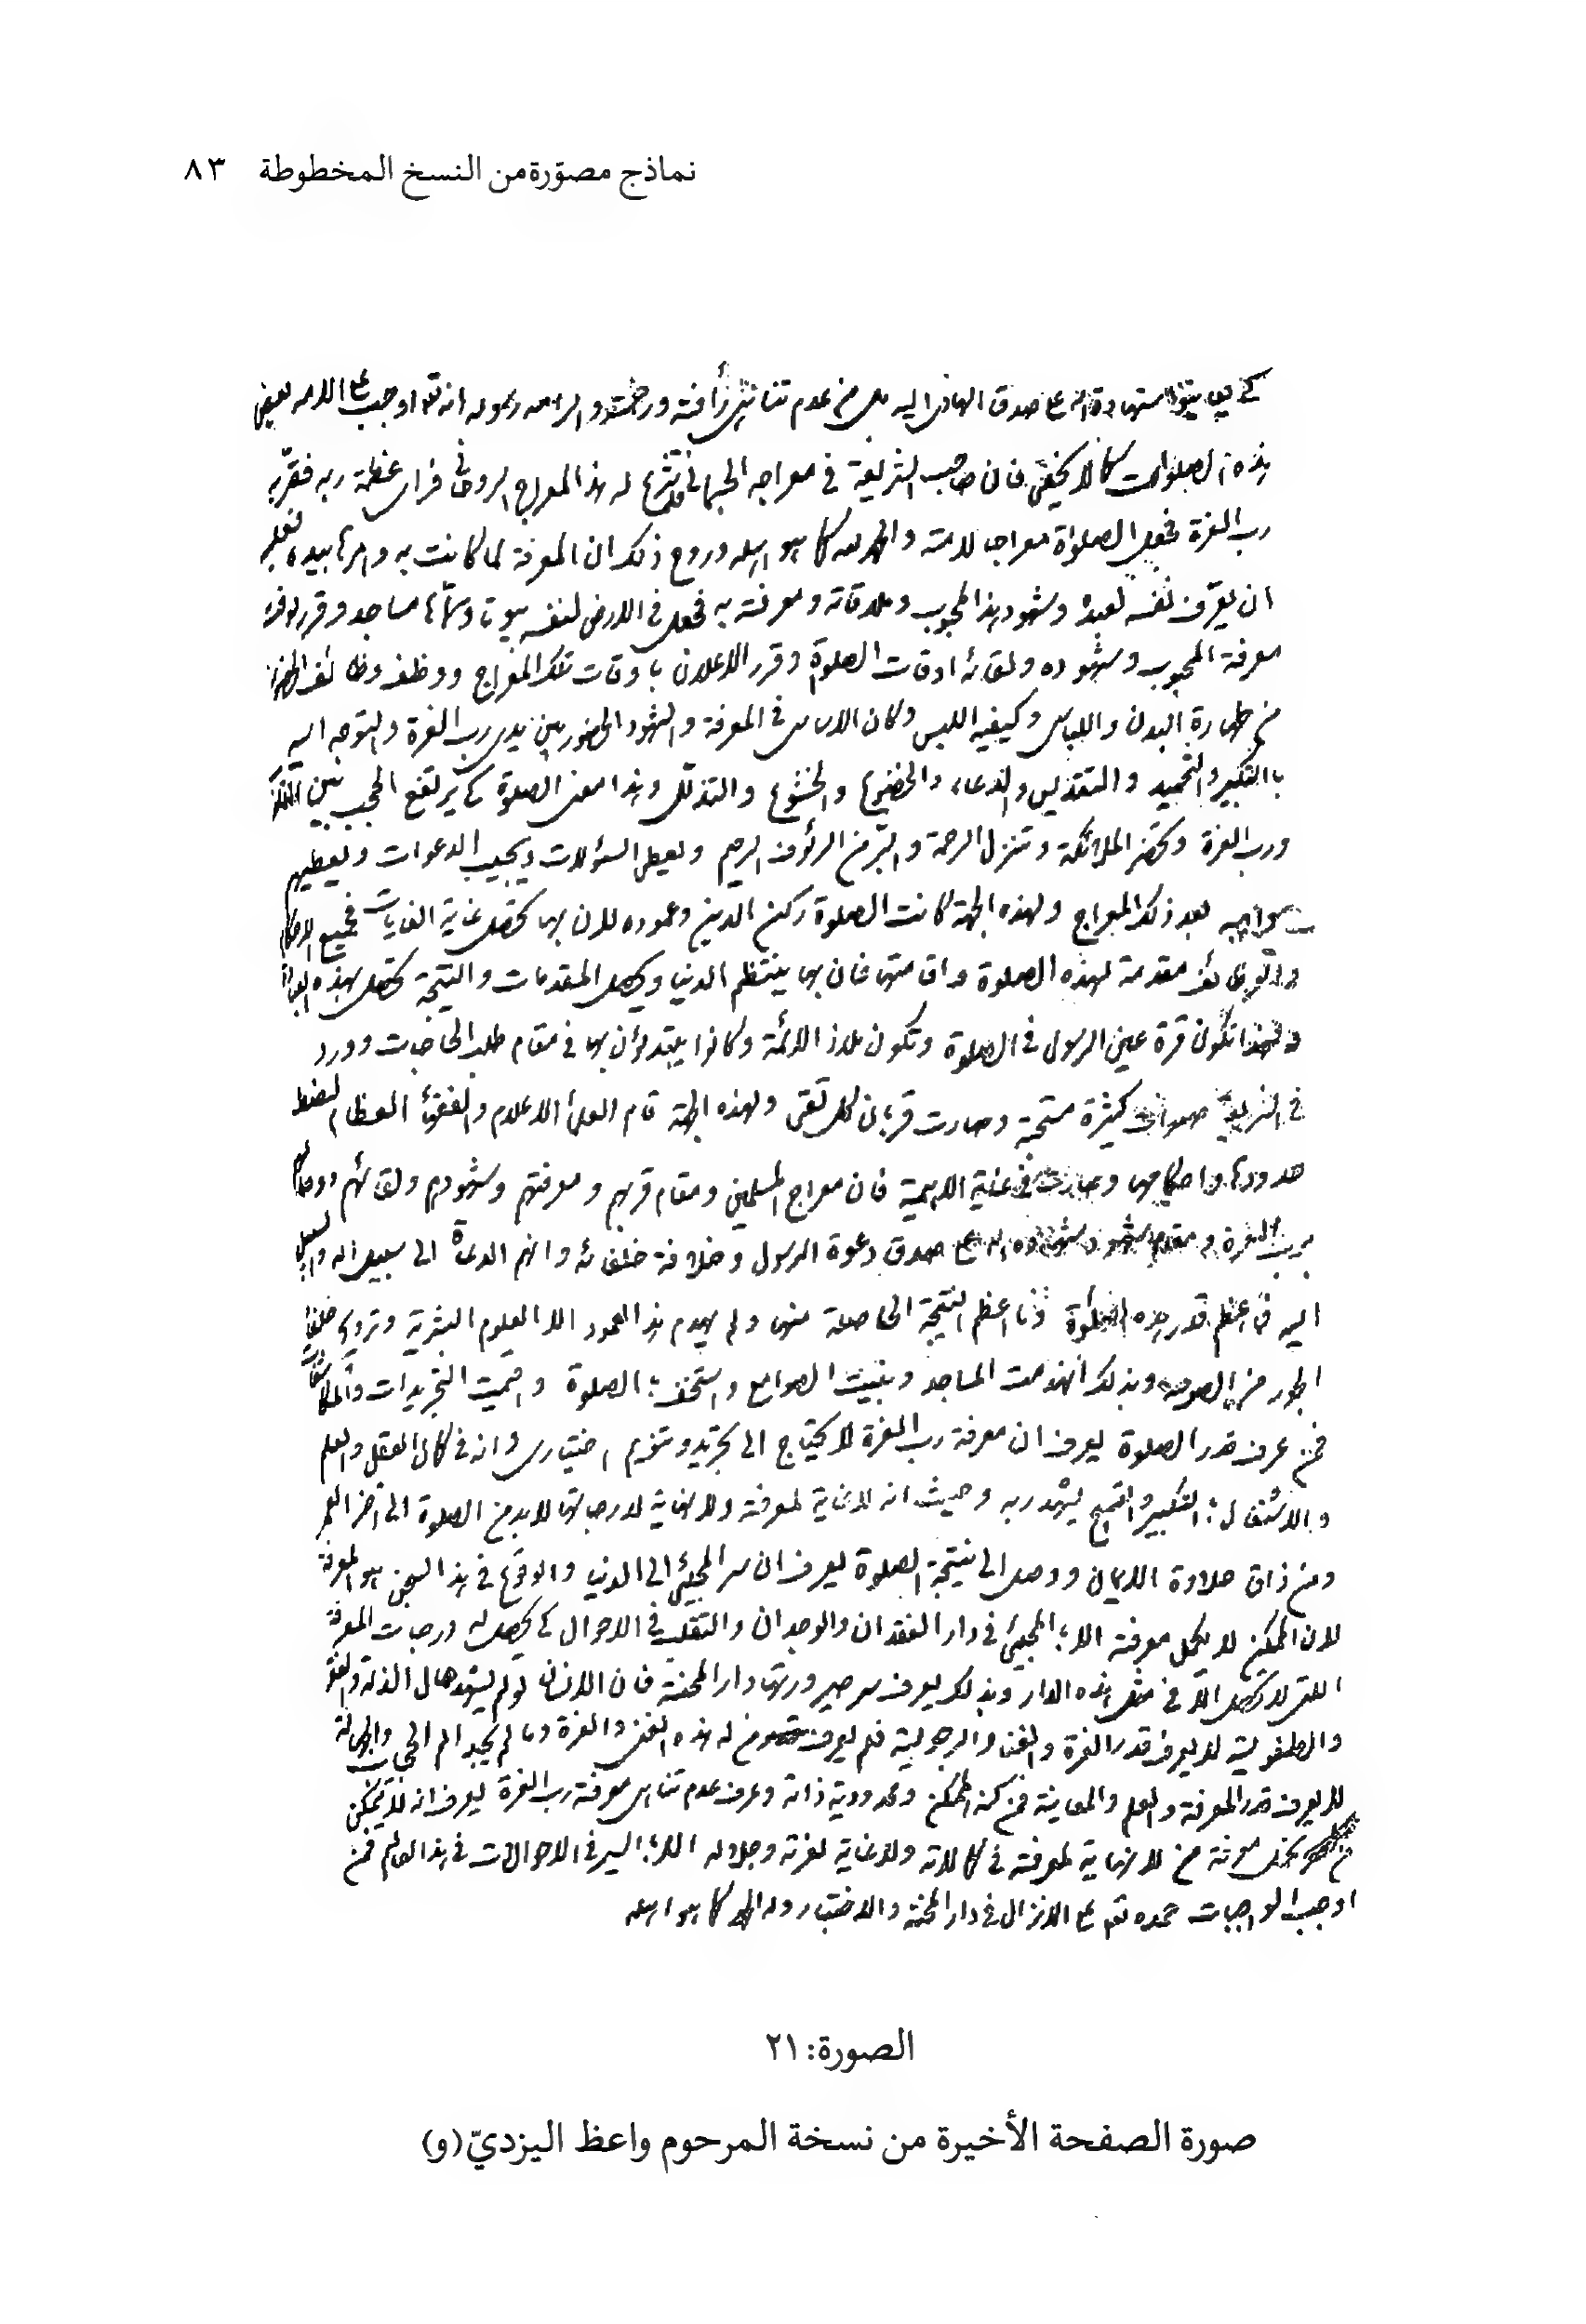 نماذج مصوّرة من النسخ المخطوطة ٨٣
صدق الهادى اليه من عدم تناهى رأفته ورحمته والراحه رسوله انه تعم اوجب على الامه بعض
هذه الصلوات كما لا يخفى فان صاحب الشريعة فى معراجه الجسمانى له هذا المعراج الروحانى فراى عظمة ربه فقرّبه
رب العزة فجعل الصلوة معراجا لامته والحمد لله كما هو اهله وروح ذلك ان المعرفة لما كانت به وامرها بيده
ان يعرّف نفسه لعبده وشهود هذا المحبوب وملاقاته ومعرفته به فجعل فى الارض لنفسه بيوتا وسمّاها مساجد وقرر
معرفة المحبوب وشهوده ولقائه اوقات الصلوة وقرر الاعلان باوقات تلك المعراج ووظف وظائف
من طهارة البدن واللباس وكيفية اللبس وكان الاساس فى المعرفة والشهود الحضور بين يدى رب العزة والتوجه اليه
بالتكبير والتحميد والتقديس والدعاء والخضوع والخشوع والتذلّل وهذا معنى الصلوة كى يرتفع الحجب بين
ورب العزة وتحضر الملائكة وتنزل الرحمة والبرّ من الرؤف الرحيم ويعطى السؤلات ويجيب الدعوات ويعطيهم
بعد ذلك المعراج ولهذه الجهة كانت الصلوة ركن الدين وعموده لان بها تحصل غاية الغايات فجميع الاحكام
مقدمة لهذه الصلوة واقامتها فان بها ينتظم الدنيا ويحصل المقدمات والنتيجة تحصل بهذه
تكون قرة عين الرسول فى الصلوة وتكون ملاذ الائمة وكانوا يبتدلؤن بها فى مقام طلب الحاجات وورد
فى الشريعة صلوات كثيرة مستحبة وصارت قربان كل تقى ولهذه الجهة قام العلماء الاعلام والفقهاء العظام لضبط
حدودها واحكامها وصارت فى غاية الاهمية فان معراج المسلمين ومقام قربهم ومعرفتهم وشهودهم ولقائهم
برب العزة ومقام صدق دعوة الرسول وخلافة خلفائه وانهم الدعاة الى سبيل الله والسبيل
اليه فما اعظم قدر هذه الصلوة وما اعظم النتيجة الحاصلة منها ولم يهدم هذا العمود الا العلوم البشرية وترويج خلفاء
الجور من الصوفية وبذلك انهدمت المساجد وبنيت الصوامع واستخف بالصلوة واقيمت التجريدات والمكاشفات
فمن عرف قدر الصلوة ليعرف ان معرفة رب العزة لا يحتاج الى تجريد وتنويم اختيارى وانه فى كمال العقل والعلم
والاشتغال بالتكبير والتسبيح يشهد ربه وحيث انه لا غاية لمعرفته ولا نهاية لدرجاتها لابد من الصلوة الى آخر العمر
ومن ذاق حلاوة الايمان ووصل الى نتيجة الصلوة ليعرف ان سر المجيئى الى الدنيا والوقوع فى هذا السجن هو المعرفة
لان الممكن لا يكمل معرفته الا بالمجيئى فى دار الفقدان والوجدان والتقلب فى الاحوال كى يحصل له درجات المعرفة
التى لا تحصل الّا فى مثل هذه الدار وبذلك يعرف سر صيرورتها دار المحنة فان الانسان لو لم يشهد حال الذلة والفقر
والطفولية لا يعرف قدر العزة والغنا والرجولية فلم يعرف من له هذه الغنى والعزة وما لم يجد الم الحجاب والجهالة
لا يعرف قدر المعرفة والعلم والمعاينة فمن كنه الممكن ومحدودية ذاته وعرف عدم تناهى معرفة رب العزة ليعرف انه لا يمكن
معرفة من لا نهاية لمعرفته فى كمالاته ولا غاية لعزته وجلاله الا بالسير فى الاحوالات فى هذا العالم فمن
اوجب الواجبات حمده تعم على الانزال فى دار المحنة والاختبار وله الحمد كما هو اهله
الصورة: ٢١
صورة الصفحة الأخيرة من نسخة المرحوم واعظ اليزديّ (و)